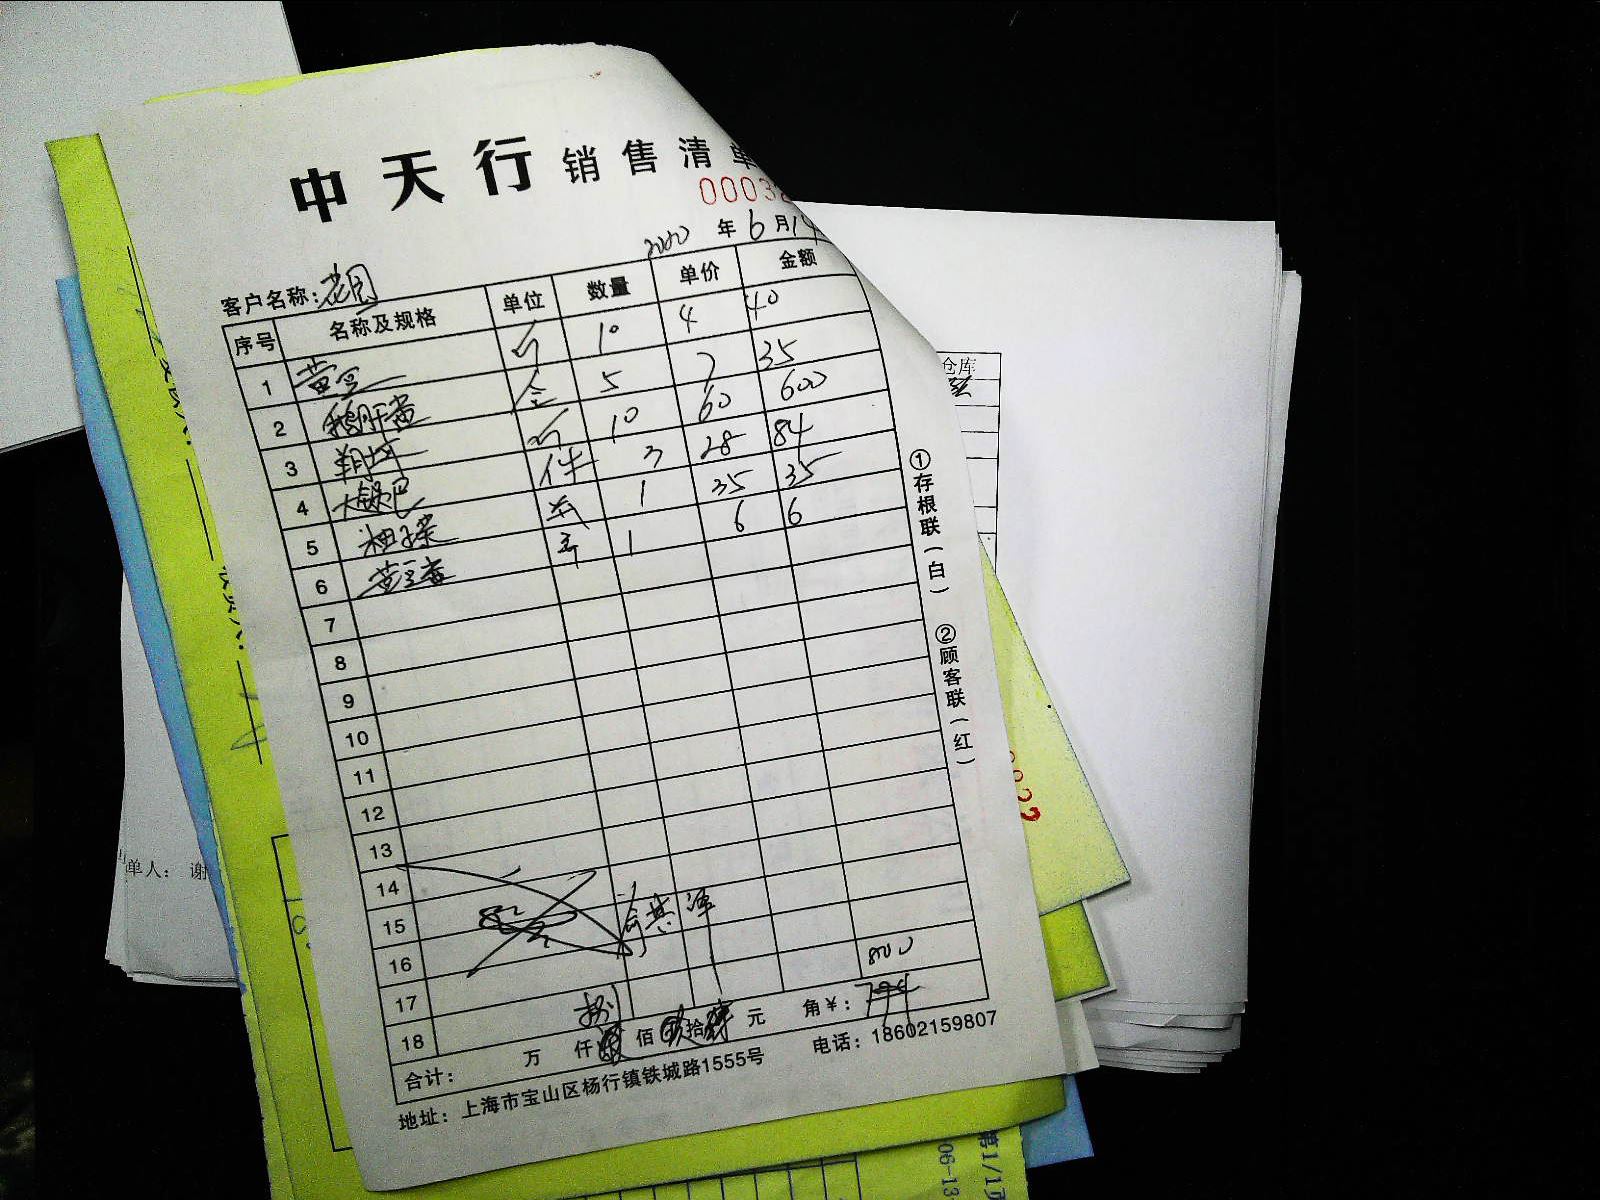 中天行 销售清单
0003
2020 年 6 月 19
客户名称：花园
序号 名称及规格 单位 数量 单价 金额
1 黄豆 斤 10 4 40
2 鹅肝酱 盒 5 7 35
3 斤 10 60 600
4 大锅巴 件 3 28 84
5 1 35 35
6 黄豆酱 1 6 6
7
8
9
10
11
12
13
14
15
16
17
18
800
合计： 万 仟 捌 佰 拾 元 角 ¥：
地址：上海市宝山区杨行镇铁城路1555号 电话：18602159807
①存根联（白）
②顾客联（红）
仓库
单人： 谢
822
第1/1页
06-13